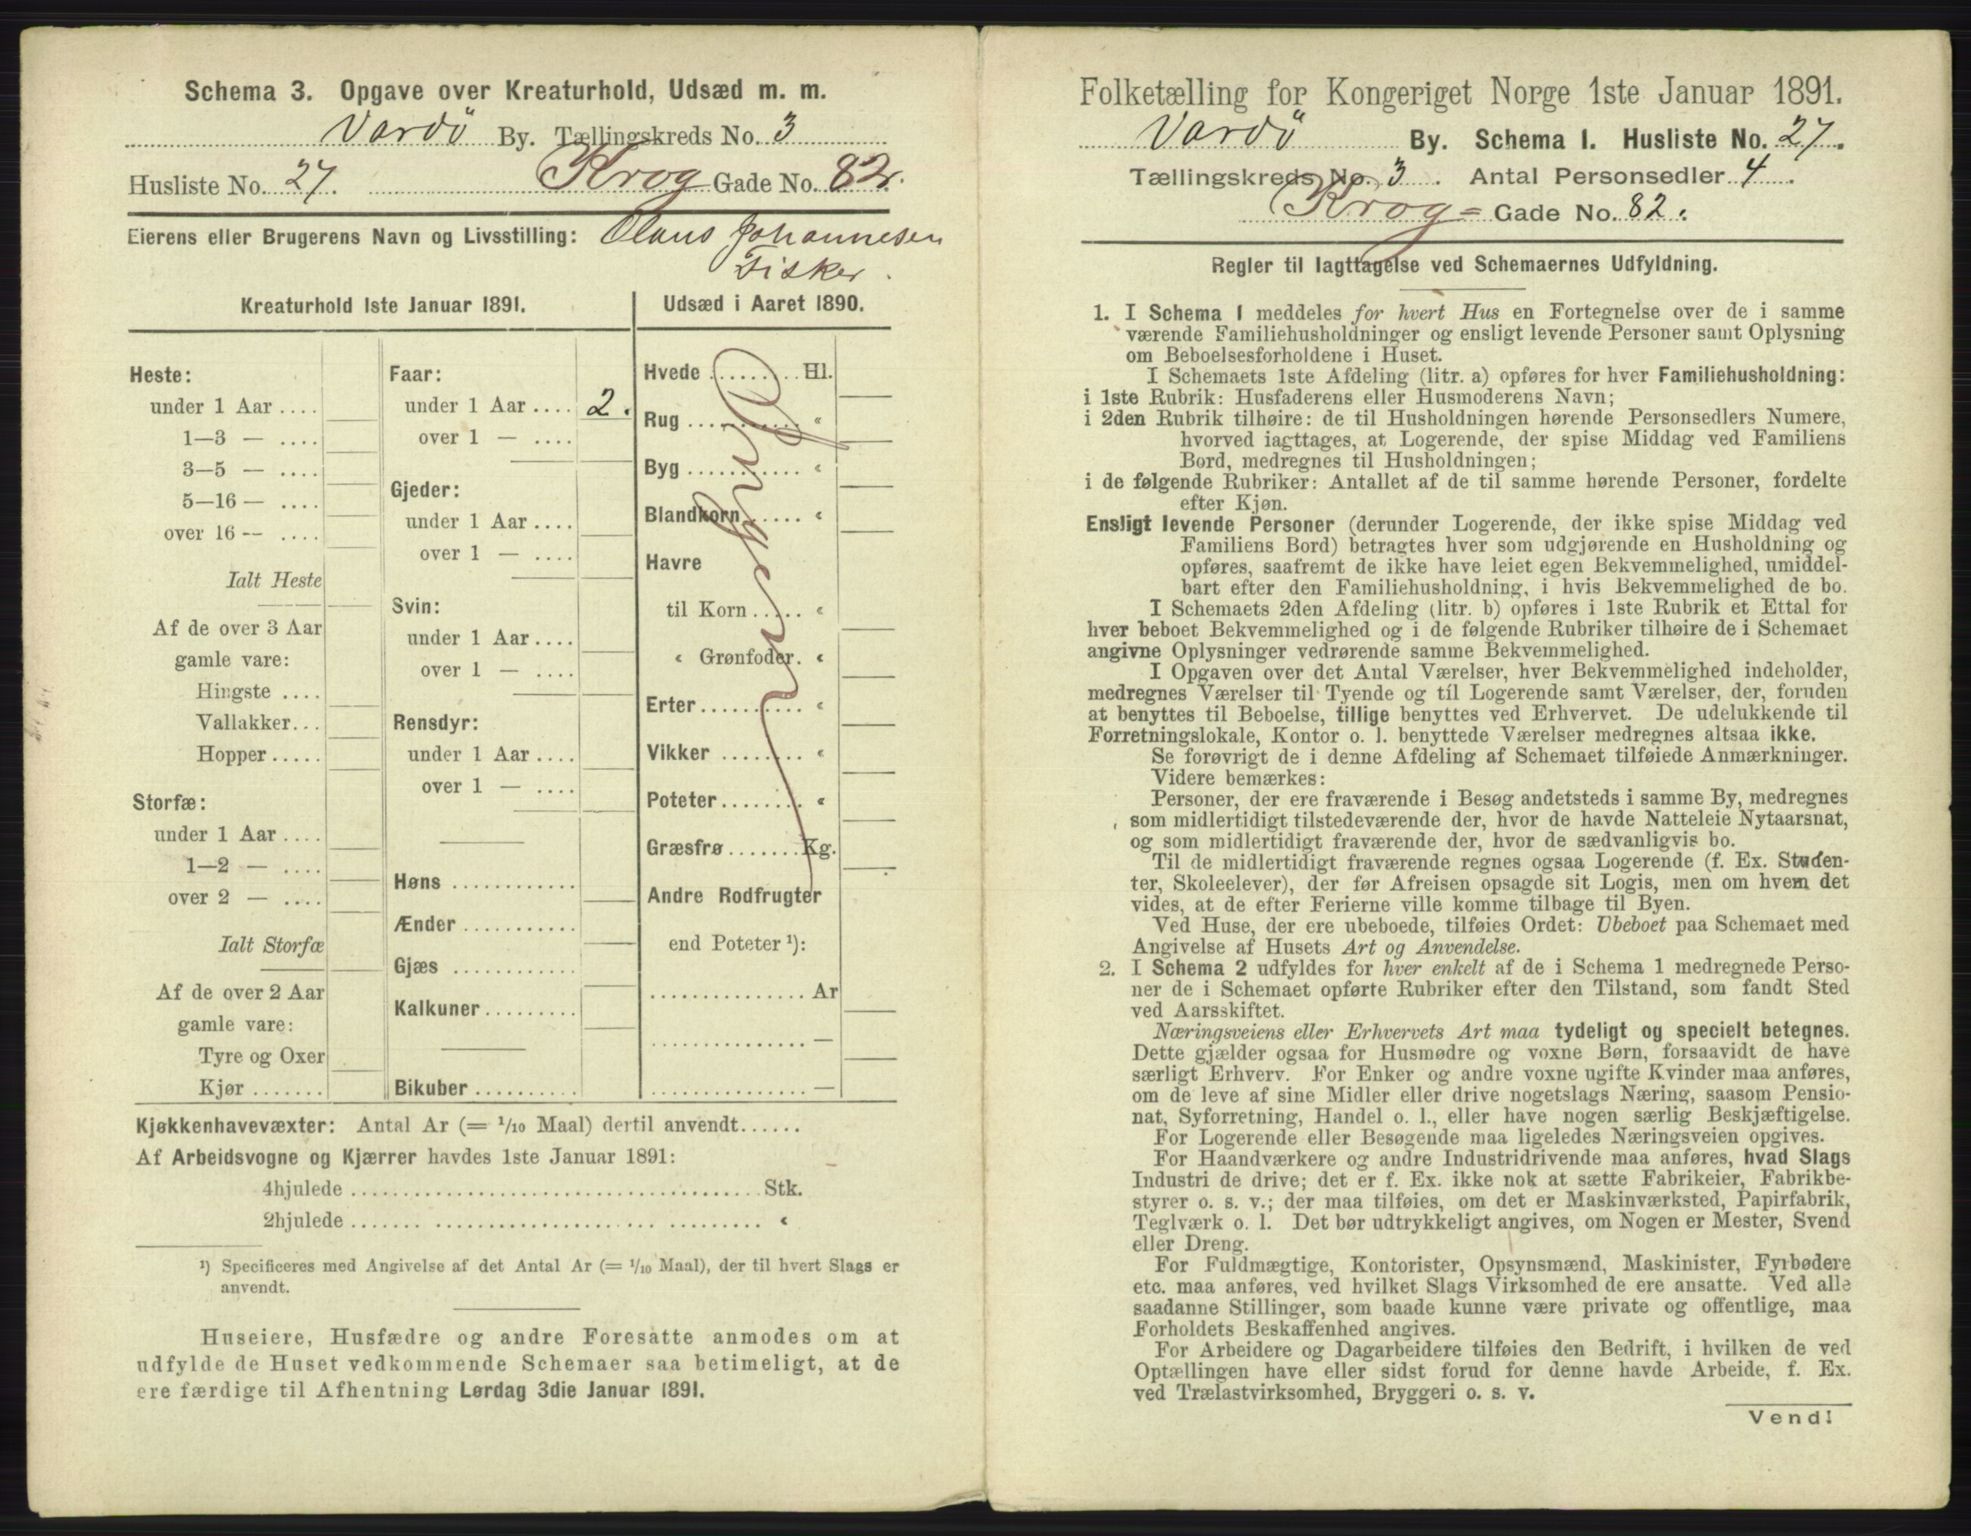 Schema 3. Opgave over Kreaturhold, Udsæd m. m.
Vardö By. Tællingskreds No. 3
Husliste No. 27. Krog Gade No. 82.
Eierens eller Brugerens Navn og Livsstilling: Olaus Johannesen
Fisker.
Kreaturhold 1ste Januar 1891.
Heste:
under 1 Aar ....
1—3 — ....
3—5 — ....
5—16 — ....
over 16 — ....
Ialt Heste
Af de over 3 Aar
gamle vare:
Hingste ....
Vallakker...
Hopper.....
Storfæ:
under 1 Aar ....
1—2 — ....
over 2 — ....
Ialt Storfæ
Af de over 2 Aar
gamle vare:
Tyre og Oxer
Kjør .......
Faar:
under 1 Aar .... 2.
over 1 — ....
Gjeder:
under 1 Aar ....
over 1 — ....
Svin:
under 1 Aar ....
over 1 — ....
Rensdyr:
under 1 Aar ....
over 1 — ....
Høns ............
Ænder ...........
Gjæs ............
Kalkuner.........
Bikuber ..........
Udsæd i Aaret 1890.
Hvede ......... Hl.
Rug ........... «
Byg ........... «
Blandkorn ..... «
Havre
til Korn ..... «
« Grønfoder. «
Erter.......... «
Vikker ........ «
Poteter........ «
Græsfrø.......Kg.
Andre Rodfrugter
end Poteter ¹):
............... Ar
............... —
............... —
Kjøkkenhavevæxter: Antal Ar (= 1/10 Maal) dertil anvendt......
Af Arbeidsvogne og Kjærrer havdes 1ste Januar 1891:
4hjulede ....................................... Stk.
2hjulede ....... ..................... ......... «
¹) Specificeres med Angivelse af det Antal Ar (= 1/10 Maal), der til hvert Slags er
anvendt.
Huseiere, Husfædre og andre Foresatte anmodes om at
udfylde de Huset vedkommende Schemaer saa betimeligt, at de
ere færdige til Afhentning Lørdag 3die Januar 1891.
Folketælling for Kongeriget Norge 1ste Januar 1891.
Vardö By. Schema I. Husliste No. 27.
Tællingskreds No. 3. Antal Personsedler 4.
Krog= Gade No. 82.
Regler til Iagttagelse ved Schemaernes Udfyldning.
1. I Schema 1 meddeles for hvert Hus en Fortegnelse over de i samme
værende Familiehusholdninger og ensligt levende Personer samt Oplysning
om Beboelsesforholdene i Huset.
I Schemaets 1ste Afdeling (litr. a) opføres for hver Familiehusholdning:
i 1ste Rubrik: Husfaderens eller Husmoderens Navn;
i 2den Rubrik tilhøire: de til Husholdningen hørende Personsedlers Numere,
hvorved iagttages, at Logerende, der spise Middag ved Familiens
Bord, medregnes til Husholdningen;
i de følgende Rubriker: Antallet af de til samme hørende Personer, fordelte
efter Kjøn.
Ensligt levende Personer (derunder Logerende, der ikke spise Middag ved
Familiens Bord) betragtes hver som udgjørende en Husholdning og
opføres, saafremt de ikke have leiet egen Bekvemmelighed, umiddel-
bart efter den Familiehusholdning, i hvis Bekvemmelighed de bo.
I Schemaets 2den Afdeling (litr. b) opføres i 1ste Rubrik et Ettal for
hver beboet Bekvemmelighed og i de følgende Rubriker tilhøire de i Schemaet
angivne Oplysninger vedrørende samme Bekvemmelighed.
I Opgaven over det Antal Værelser, hver Bekvemmelighed indeholder,
medregnes Værelser til Tyende og til Logerende samt Værelser, der, foruden
at benyttes til Beboelse, tillige benyttes ved Erhvervet. De udelukkende til
Forretningslokale, Kontor o. l. benyttede Værelser medregnes altsaa ikke.
Se forøvrigt de i denne Afdeling af Schemaet tilføiede Anmærkninger.
Videre bemærkes:
Personer, der ere fraværende i Besøg andetsteds i samme By, medregnes
som midlertidigt tilstedeværende der, hvor de havde Natteleie Nytaarsnat,
og som midlertidigt fraværende der, hvor de sædvanligvis bo.
Til de midlertidigt fraværende regnes ogsaa Logerende (f. Ex. Studen-
ter, Skoleelever), der før Afreisen opsagde sit Logis, men om hvem det
vides, at de efter Ferierne ville komme tilbage til Byen.
Ved Huse, der ere ubeboede, tilføies Ordet: Ubeboet paa Schemaet med
Angivelse af Husets Art og Anvendelse.
2. I Schema 2 udfyldes for hver enkelt af de i Schema 1 medregnede Perso-
ner de i Schemaet opførte Rubriker efter den Tilstand, som fandt Sted
ved Aarsskiftet.
Næringsveiens eller Erhvervets Art maa tydeligt og specielt betegnes.
Dette gjælder ogsaa for Husmødre og voxne Børn, forsaavidt de have
særligt Erhverv. For Enker og andre voxne ugifte Kvinder maa anføres,
om de leve af sine Midler eller drive nogetslags Næring, saasom Pensio-
nat, Syforretning, Handel o. l., eller have nogen særlig Beskjæftigelse.
For Logerende eller Besøgende maa ligeledes Næringsveien opgives.
For Haandværkere og andre Industridrivende maa anføres, hvad Slags
Industri de drive; det er f. Ex. ikke nok at sætte Fabrikeier, Fabrikbe-
styrer o. s. v.; der maa tilføies, om det er Maskinværksted, Papirfabrik,
Teglværk o. l. Det bør udtrykkeligt angives, om Nogen er Mester, Svend
eller Dreng.
For Fuldmægtige, Kontorister, Opsynsmænd, Maskinister, Fyrbødere
etc. maa anføres, ved hvilket Slags Virksomhed de ere ansatte. Ved alle
saadanne Stillinger, som baade kunne være private og offentlige, maa
Forholdets Beskaffenhed angives.
For Arbeidere og Dagarbeidere tilføies den Bedrift, i hvilken de ved
Optællingen have eller sidst forud for denne havde Arbeide, f. Ex.
ved Trælastvirksomhed, Bryggeri o. s. v.
Vend!